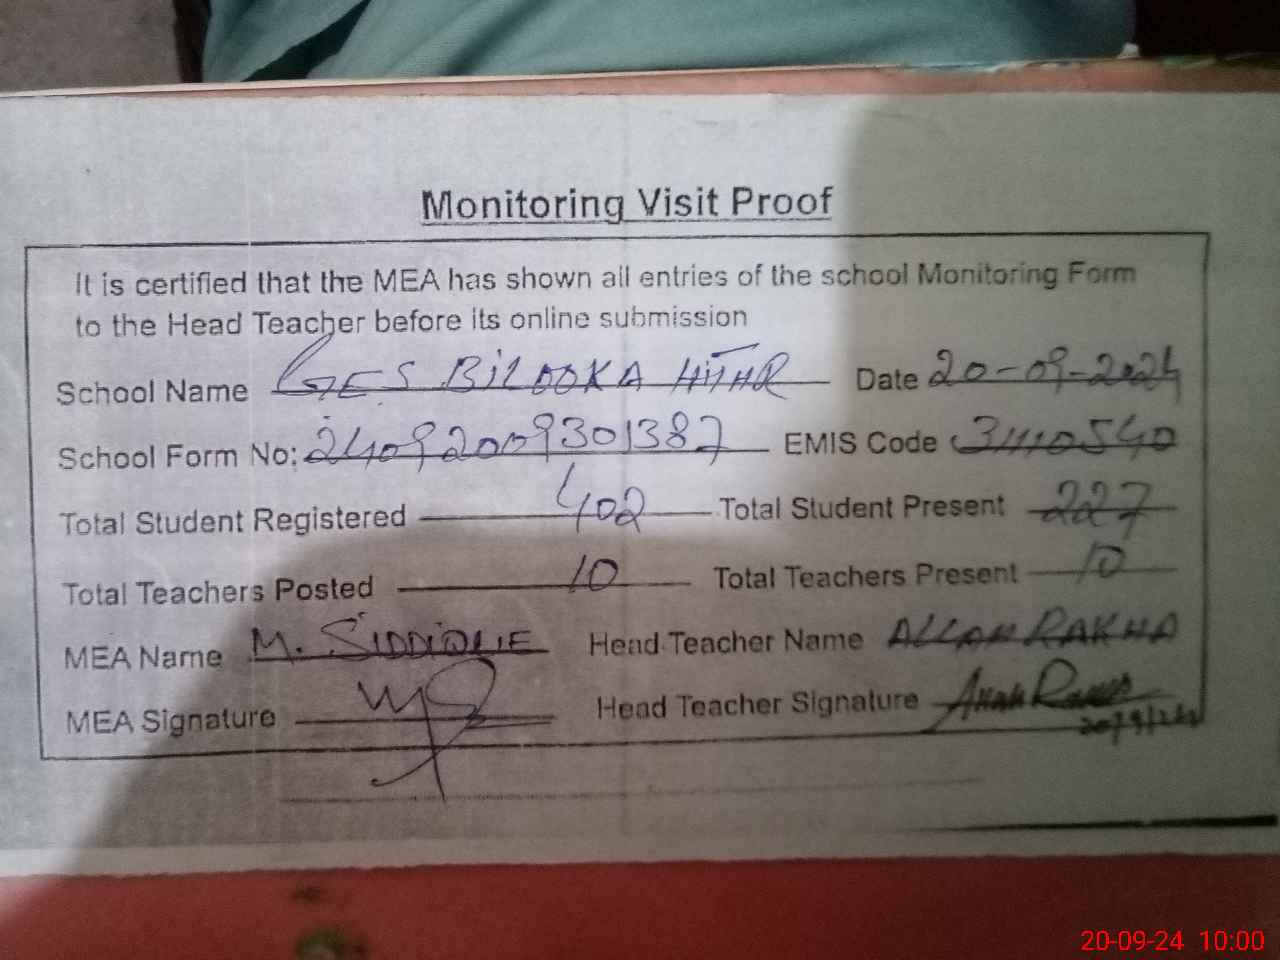 Monitoring Visit Proof
It is certified that the MEA has shown all entries of the school Monitoring Form
to the Head Teacher before its online submission
School Name GES BILOOKA HITHR Date 20-09-2024
School Form No: 24092009301387 EMIS Code 31110540
Total Student Registered 402 Total Student Present 227
Total Teachers Posted 10 Total Teachers Present 10
MEA Name M. SIDDIQUE Head Teacher Name ALLAH RAKHA
MEA Signature Head Teacher Signature Allah Rakha
20-09-24 10:00